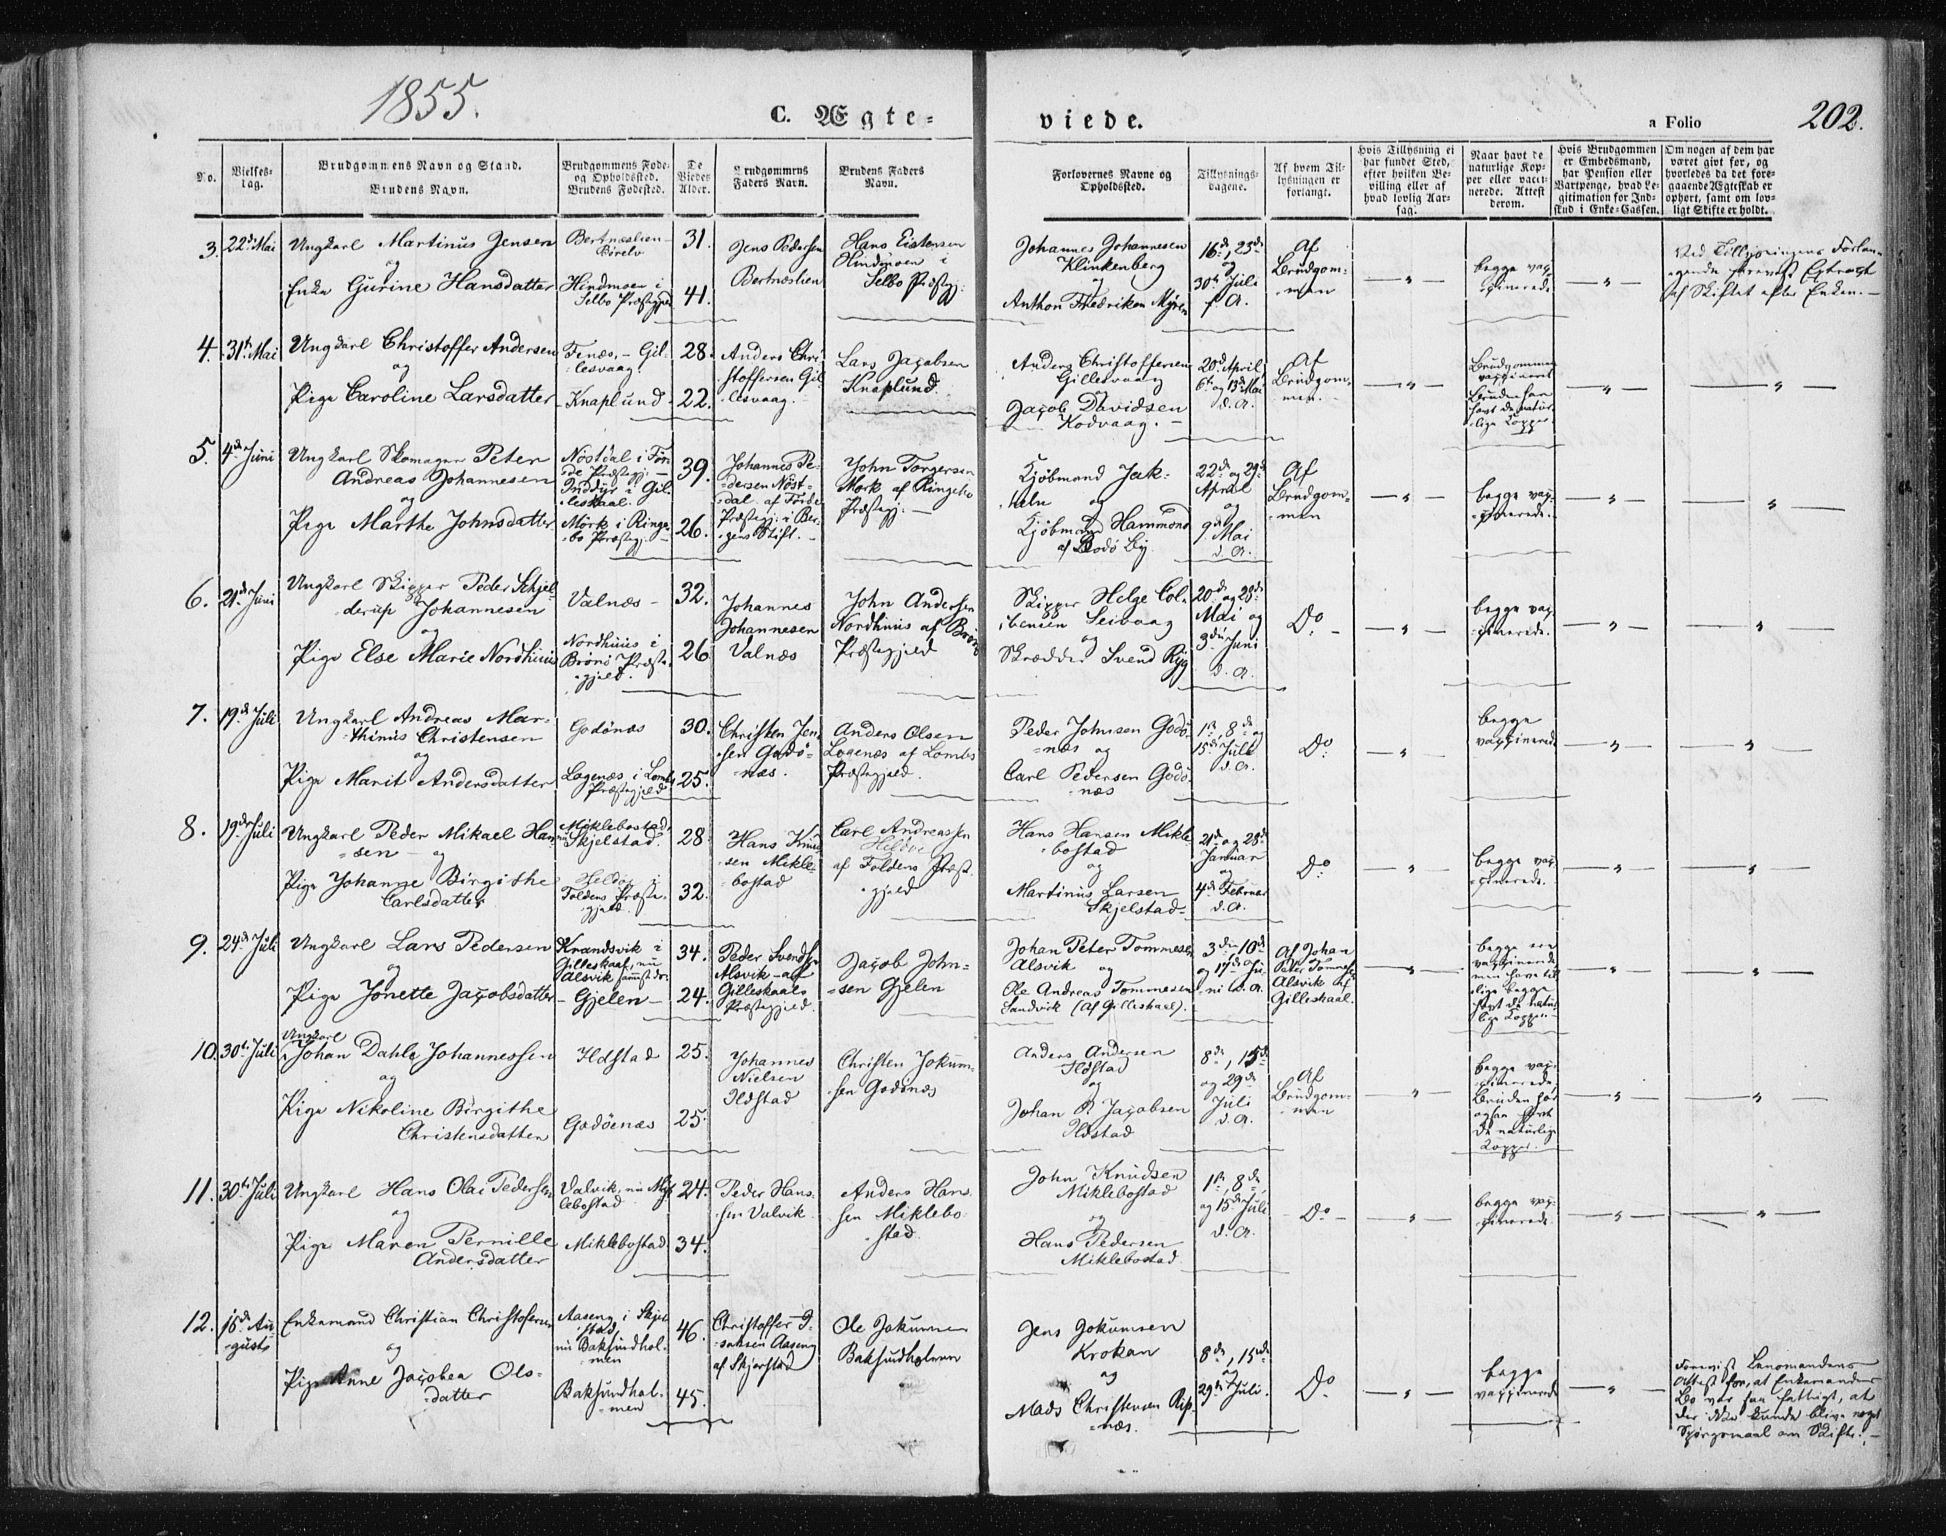 1855.
C. Ægte-
viede.
a Folio
202.
No.
Vielses-
dag.
Brudgommens Navn og Stand.
Brudens Navn.
Brudgommens Føde-
og Opholdssted.
Brudens Fødested.
De
Viedes
Alder.
Brudgommens
Faders Navn.
Brudens Faders
Navn.
Forlovernes Navne og
Opholdssted.
Tillysnings-
dagene.
Af hvem Til-
lysningen er
forlangt.
Hvis Tillysning ei
har fundet Sted,
efter hvilken Be-
villing eller af
hvad lovlig Aar-
sag.
Naar havt de
naturlige Kop-
per eller vacci-
nerede. Attest
derom.
Hvis Brudgommen
er Embedsmand,
har Pension eller
Vartpenge, hvad Le-
gitimation for Ind-
skud i Enke-Cassen.
Om nogen af dem har
været givt før, og
hvorledes da det fore-
gaaende Ægteskab er
ophørt, samt om lov-
ligt Skifte er holdt.
3. 22de Mai
Ungkarl Martinus Jensen
og
Enke Gurine Hansdatter
Bertnæslien
Børelv
Hindmoen i
Selbo Præstegjeld
31.
41.
Jens Pedersen
Bertnæslien
Hans Eistensen
Hindmoen i
Selbo Præstegj:
Johannes Johannesen
Klinkenberg
og
Anthon Fredriksen Myren
16de, 23de
og
30te Juli
f. A.
Af
Brudgom-
men
— " —
begge vac-
cinerede
— " —
Ved Tillysningens Forlan-
gende foreviist Extract
af Skiftet efter Enken. —
4. 31te Mai
Ungkarl Christoffer Andersen
og
Pige Caroline Larsdatter
Fenæs, – Gil-
lesvaag.
Knaplund
28.
22.
Anders Chri-
stoffersen Gil-
lesvaag.
Lars Jacobsen
Knaplund.
Anders Christoffersen
Gillesvaag
Jacob Davidsen
Kodvaag. –
20de April,
6te og 13de Mai
d. A.
Af
Brudgom-
men.
— " —
Brudgommen
vaccineret
Bruden har
havt de natur-
lige Kopper
— " —
— " —
5. 4de Juni
Ungkarl Skomager Peter
Andreas Johannesen
og
Pige Marthe Johnsdatter
Nøstdal i Før-
de Præstegj: —
Inddyr i Gil-
leskaal.
Mørk i Ringe-
bo Præstegj. —
39.
26.
Johannes Pe-
dersen Nøst-
dal af Førde
Præstegj: i Ber-
gens Stift. –
John Torgersen
Mørk af Ringebo
Præstegj: —
Kjøbmand Jak-
heln og
Kjøbmand Hammond
af Bodø By.
22de og 29de
April
og
9de Mai
d. A.
Af
Brudgom-
men
— " —
begge vac-
cinerede.
— " —
"
6. 21de Juni
Ungkarl Skipper Peder Schjel-
derup Johannesen
og
Pige Else Marie Nordhuus
Valnæs –
Nordhuus i
Brønø Præste-
gjeld.
32.
26
Johannes
Johannesen
Valnæs
John Andersen
Nordhuus af Brønø
Præstegjeld
Skipper Helge Col-
bensen Seivaag
og
Skrædder Svend Ryg
20de og 28de
Mai og
3die Juni
d. A.
Do –
— " —
begge vac-
cinerede.
— " —
"
7. 19de Juli
Ungkarl Andreas Mar-
thinus Christensen
og
Pige Marit Andersdatter
Godønæs
Løgenæs i Loms
Præstegjeld
30.
25.
Christen Jen-
sen Godø-
næs.
Anders Olsen
Løgenæs af Loms
Præstegjeld.
Peder Johnsen Godø-
næs og
Carl Pedersen Godø-
næs
1ste, 8de og
15de Juli
d. A.
Do.
"
begge
vaccinerede
— " —
— " —
8. 19de Juli
Ungkarl Peder Mikael Han-
sen og
Pige Johanne Birgithe
Carlsdatter
Miklebostad,
nu Skjelstad.
Foldens Præste-
gjeld.
28.
32.
Hans Knud-
sen Mikle-
bostad
Carl Andreassen
af Foldens Præst-
gjeld
Hans Hansen Mikle-
bostad
og
Martinus Larsen
Skjelstad-
21de og 28de
Januar
og
4de Februar
d. A.
Do.
"
begge vac-
cinerede.
— " —
"
9. 24de Juli
Ungkarl Lars Pedersen
og
Pige Jonette Jacobsdatter
Krandsvik i
Gilleskaal, nu
Alsvik sammesteds.
– Gjelen –
34.
24.
Peder Svendsen
Alsvik – af
Gilleskaals
Præstegjeld.
Jacob John-
sen Gjelen
Johan Peter Tommesen
Alsvik og
Ole Andreas Tommesen
Sandvik (af Gilleskaal).
3die, 10de
og 17de Ju-
ni d. A.
Af Johan
Peter Tommesen
Alsvik af
Gilleskaal.
"
begge ere
vaccinerede
men have til-
lige begge
havt de natur-
lige Kopper.
— " —
"
10. 30te Juli
Ungkarl
Johan Dahle Johannessen
og
Pige Nikoline Birgithe
Christensdatter
Ildstad
Godøenæs
25.
25.
Johannes
Nielsen
Ildstad
Christen Jokum-
sen Godønæs
Anders Andersen
Ildstad
og
Johan P. Jacobsen
Ildstad
8de, 15de
og 29de
Juli
d. A.
Af
Brudgom-
men
"
begge vac-
cinerede,
Bruden har
ogsaa havt
de naturlige
Kopper.
— " —
"
11. 30te Juli
Ungkarl Hans Olai Pedersen
og
Pige Maren Pernille
Andersdatter
Valvik, nu Mik-
lebostad
Miklebostad
24.
34.
Peder Han-
sen Valvik
Anders Han-
sen Miklebo-
stad.
John Knudsen
Miklebostad
og
Hans Pedersen
Miklebostad.
1ste, 8de,
og 15de Juli
d. A.
Do –
"
begge vac-
cinerede.
— " —
"
12. 15de Au-
gust
Enkemand Christian Christofersen
og
Pige Anne Jacobea Ols-
datter
Aaseng i Skjer-
stad,
nu Baksundhol-
men
Baksundhol-
men
46.
45.
Christoffer I-
saksen Aaseng
af Skjerstad
Ole Jokumsen
Baksundholmen
Jens Jokumsen
Krokan
og
Mads Christensen Rip-
næs.
8de, 15de
og
29de Juli.
Do –
"
begge
vaccinerede
— " —
Forevist Lensmandens
Attest for, at Enkemandens
Bo var saa fattigt, at
der ikke kunde blive noget
Spørgsmaal om Skifte. –